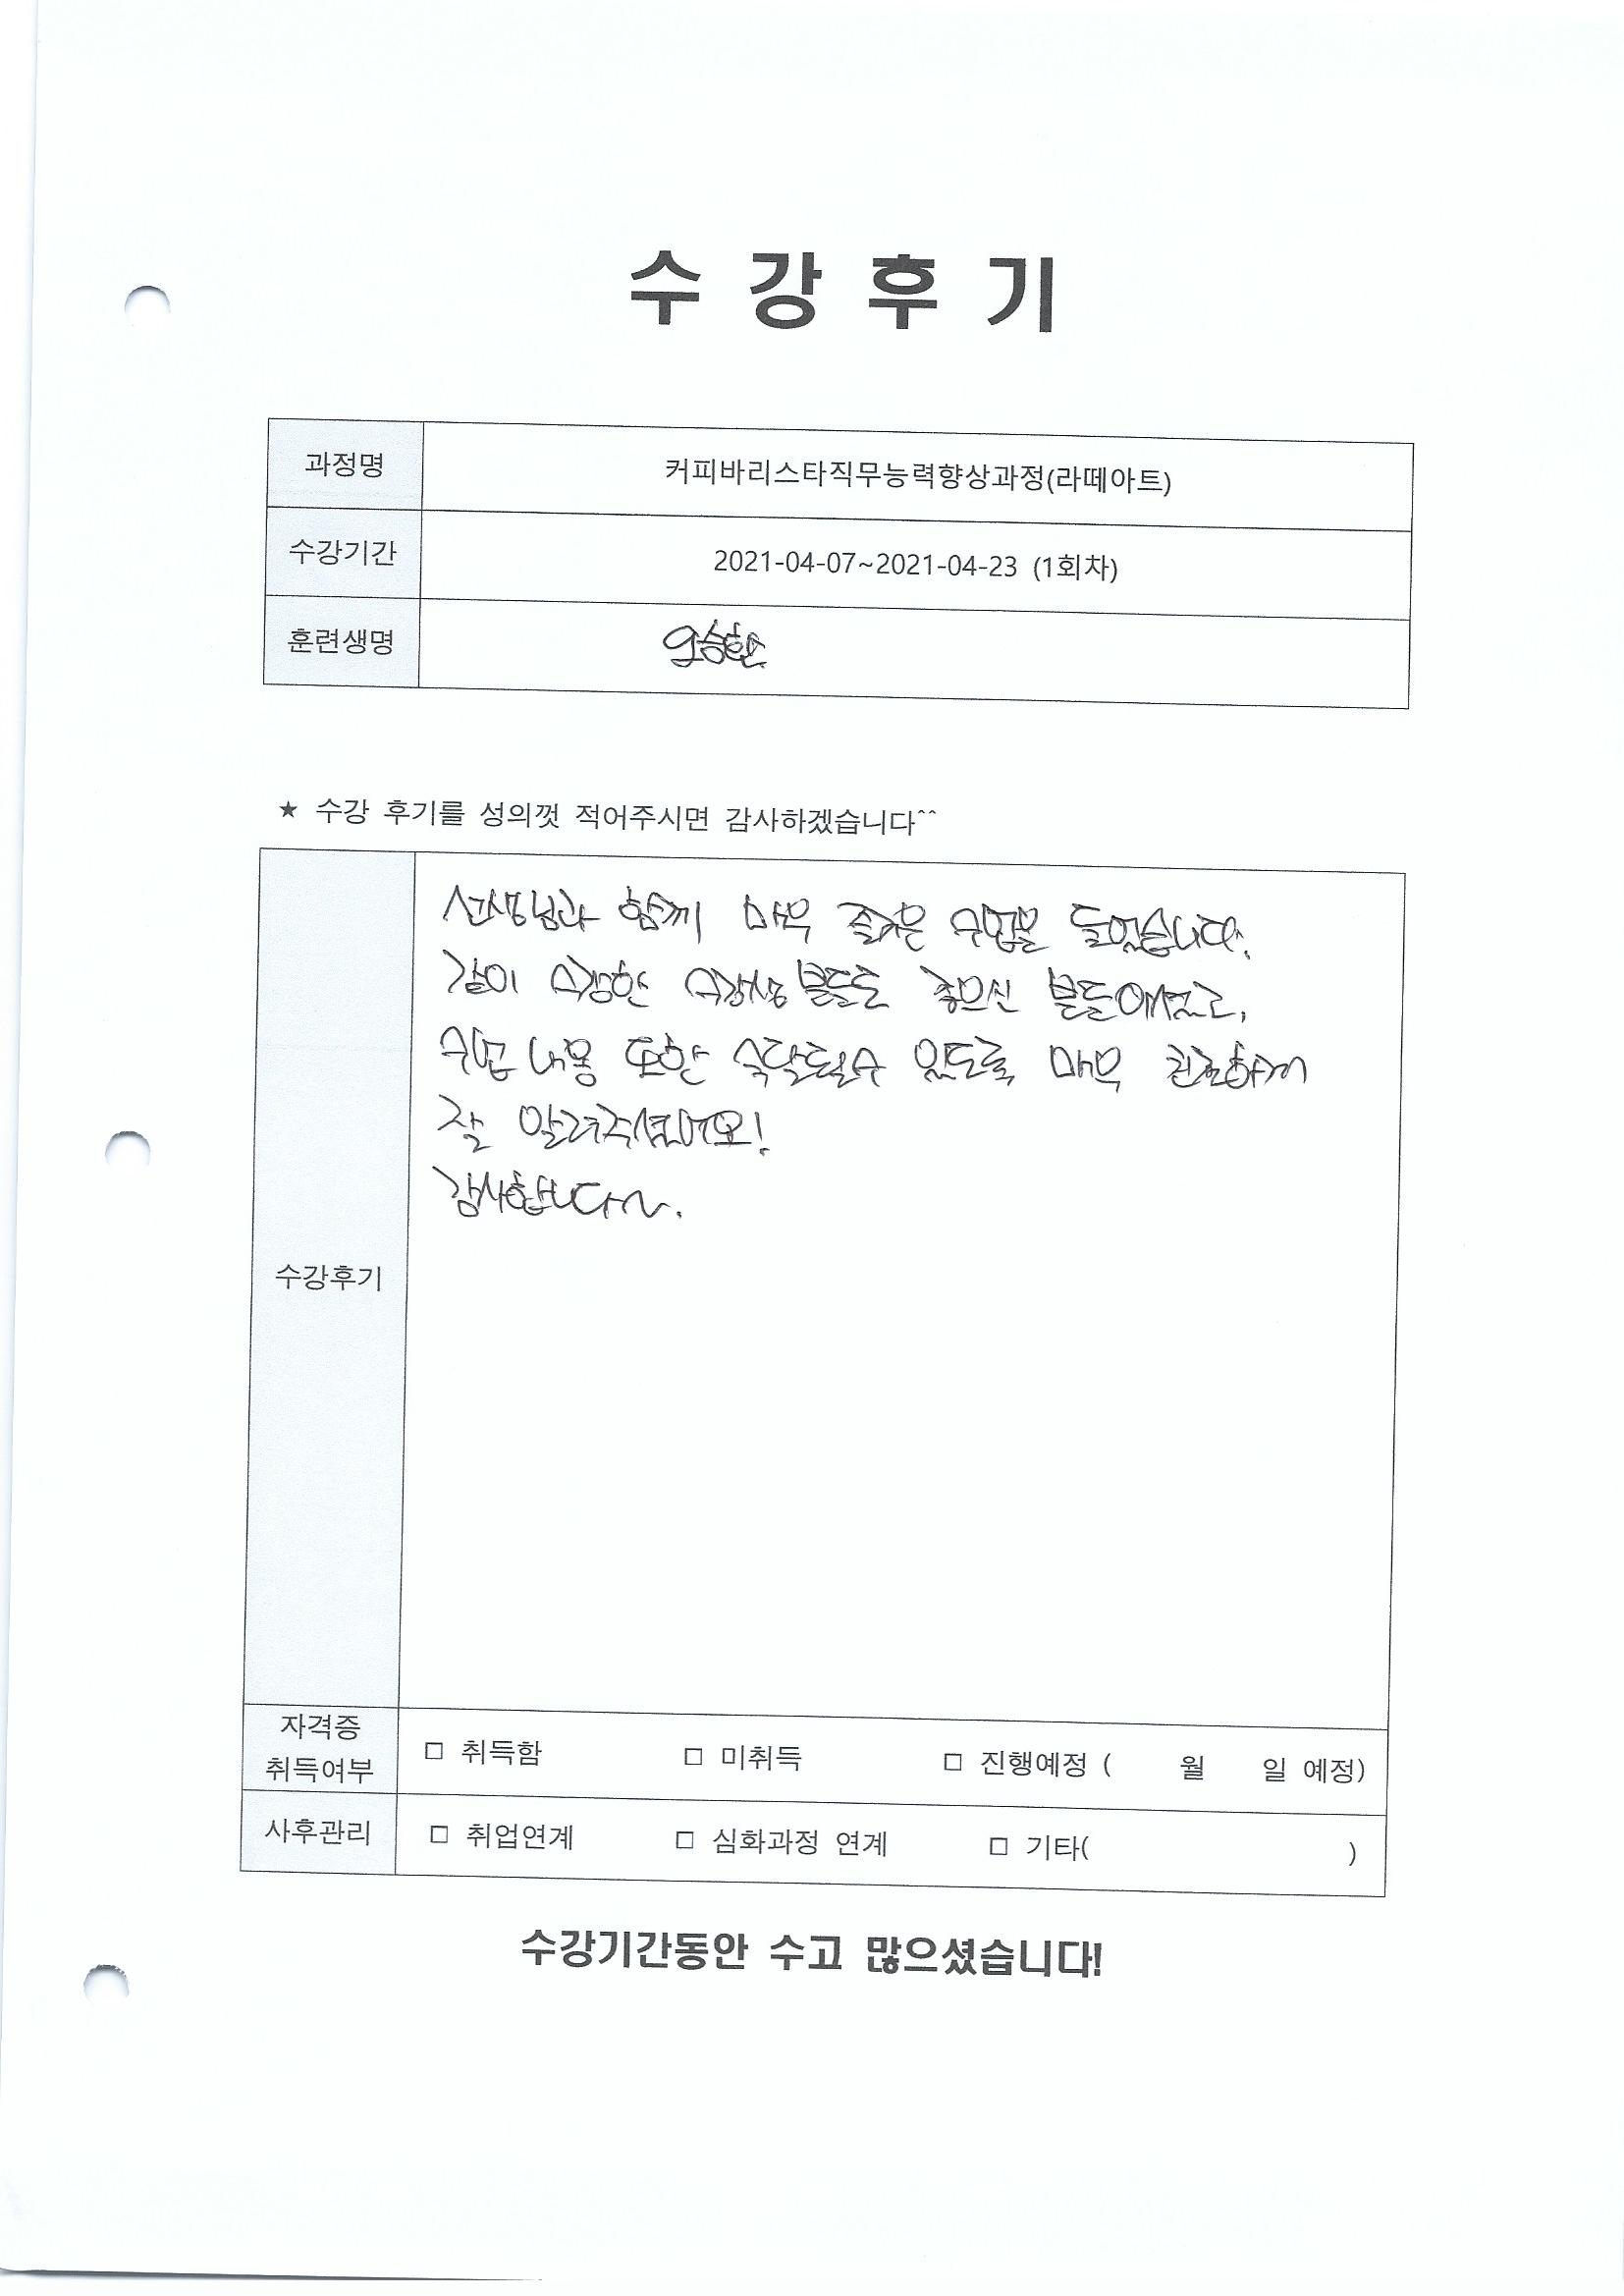 수강후기
과정명 커피바리스타직무능력향상과정(라떼아트)
수강기간 2021-04-07~2021-04-23 (1회차)
훈련생명 오승환
★ 수강 후기를 성의껏 적어주시면 감사하겠습니다^^
선생님과 함께 매우 즐거운 수업을 들었습니다.
같이 수강한 수강생 분들도 좋으신 분들이셨고,
수업 내용 또한 숙달될수 있도록 매우 친절하게
잘 알려주셨어요!
감사합니다~.
수강후기
자격증
취득여부 □ 취득함 □ 미취득 □ 진행예정 ( 월 일 예정)
사후관리 □ 취업연계 □ 심화과정 연계 □ 기타( )
수강기간동안 수고 많으셨습니다!